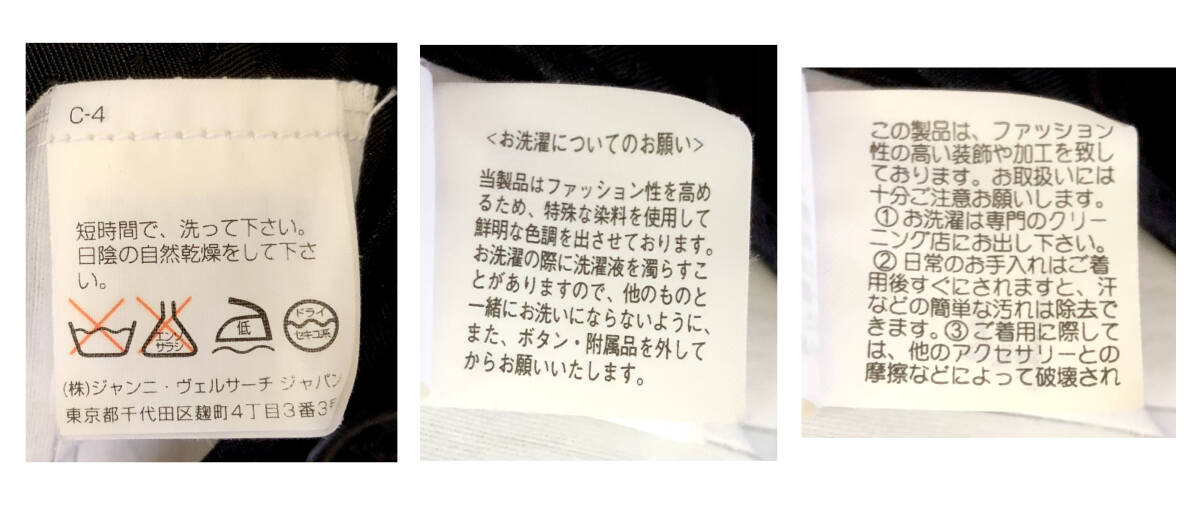 C-4
短時間で、洗って下さい。
日陰の自然乾燥をして下さ
い。
エンソ
サラシ
低
ドライ
セキユ系
(株)ジャンニ・ヴェルサーチ ジャパン
東京都千代田区麹町4丁目3番3号
<お洗濯についてのお願い>
当製品はファッション性を高め
るため、特殊な染料を使用して
鮮明な色調を出させております。
お洗濯の際に洗濯液を濁らすこ
とがありますので、他のものと
一緒にお洗いにならないように、
また、ボタン・附属品を外して
からお願いいたします。
この製品は、ファッション
性の高い装飾や加工を致し
ております。お取扱いには
十分ご注意お願いします。
① お洗濯は専門のクリー
ニング店にお出し下さい。
② 日常のお手入れはご着
用後すぐにされますと、汗
などの簡単な汚れは除去で
きます。③ ご着用に際して
は、他のアクセサリーとの
摩擦などによって破壊され